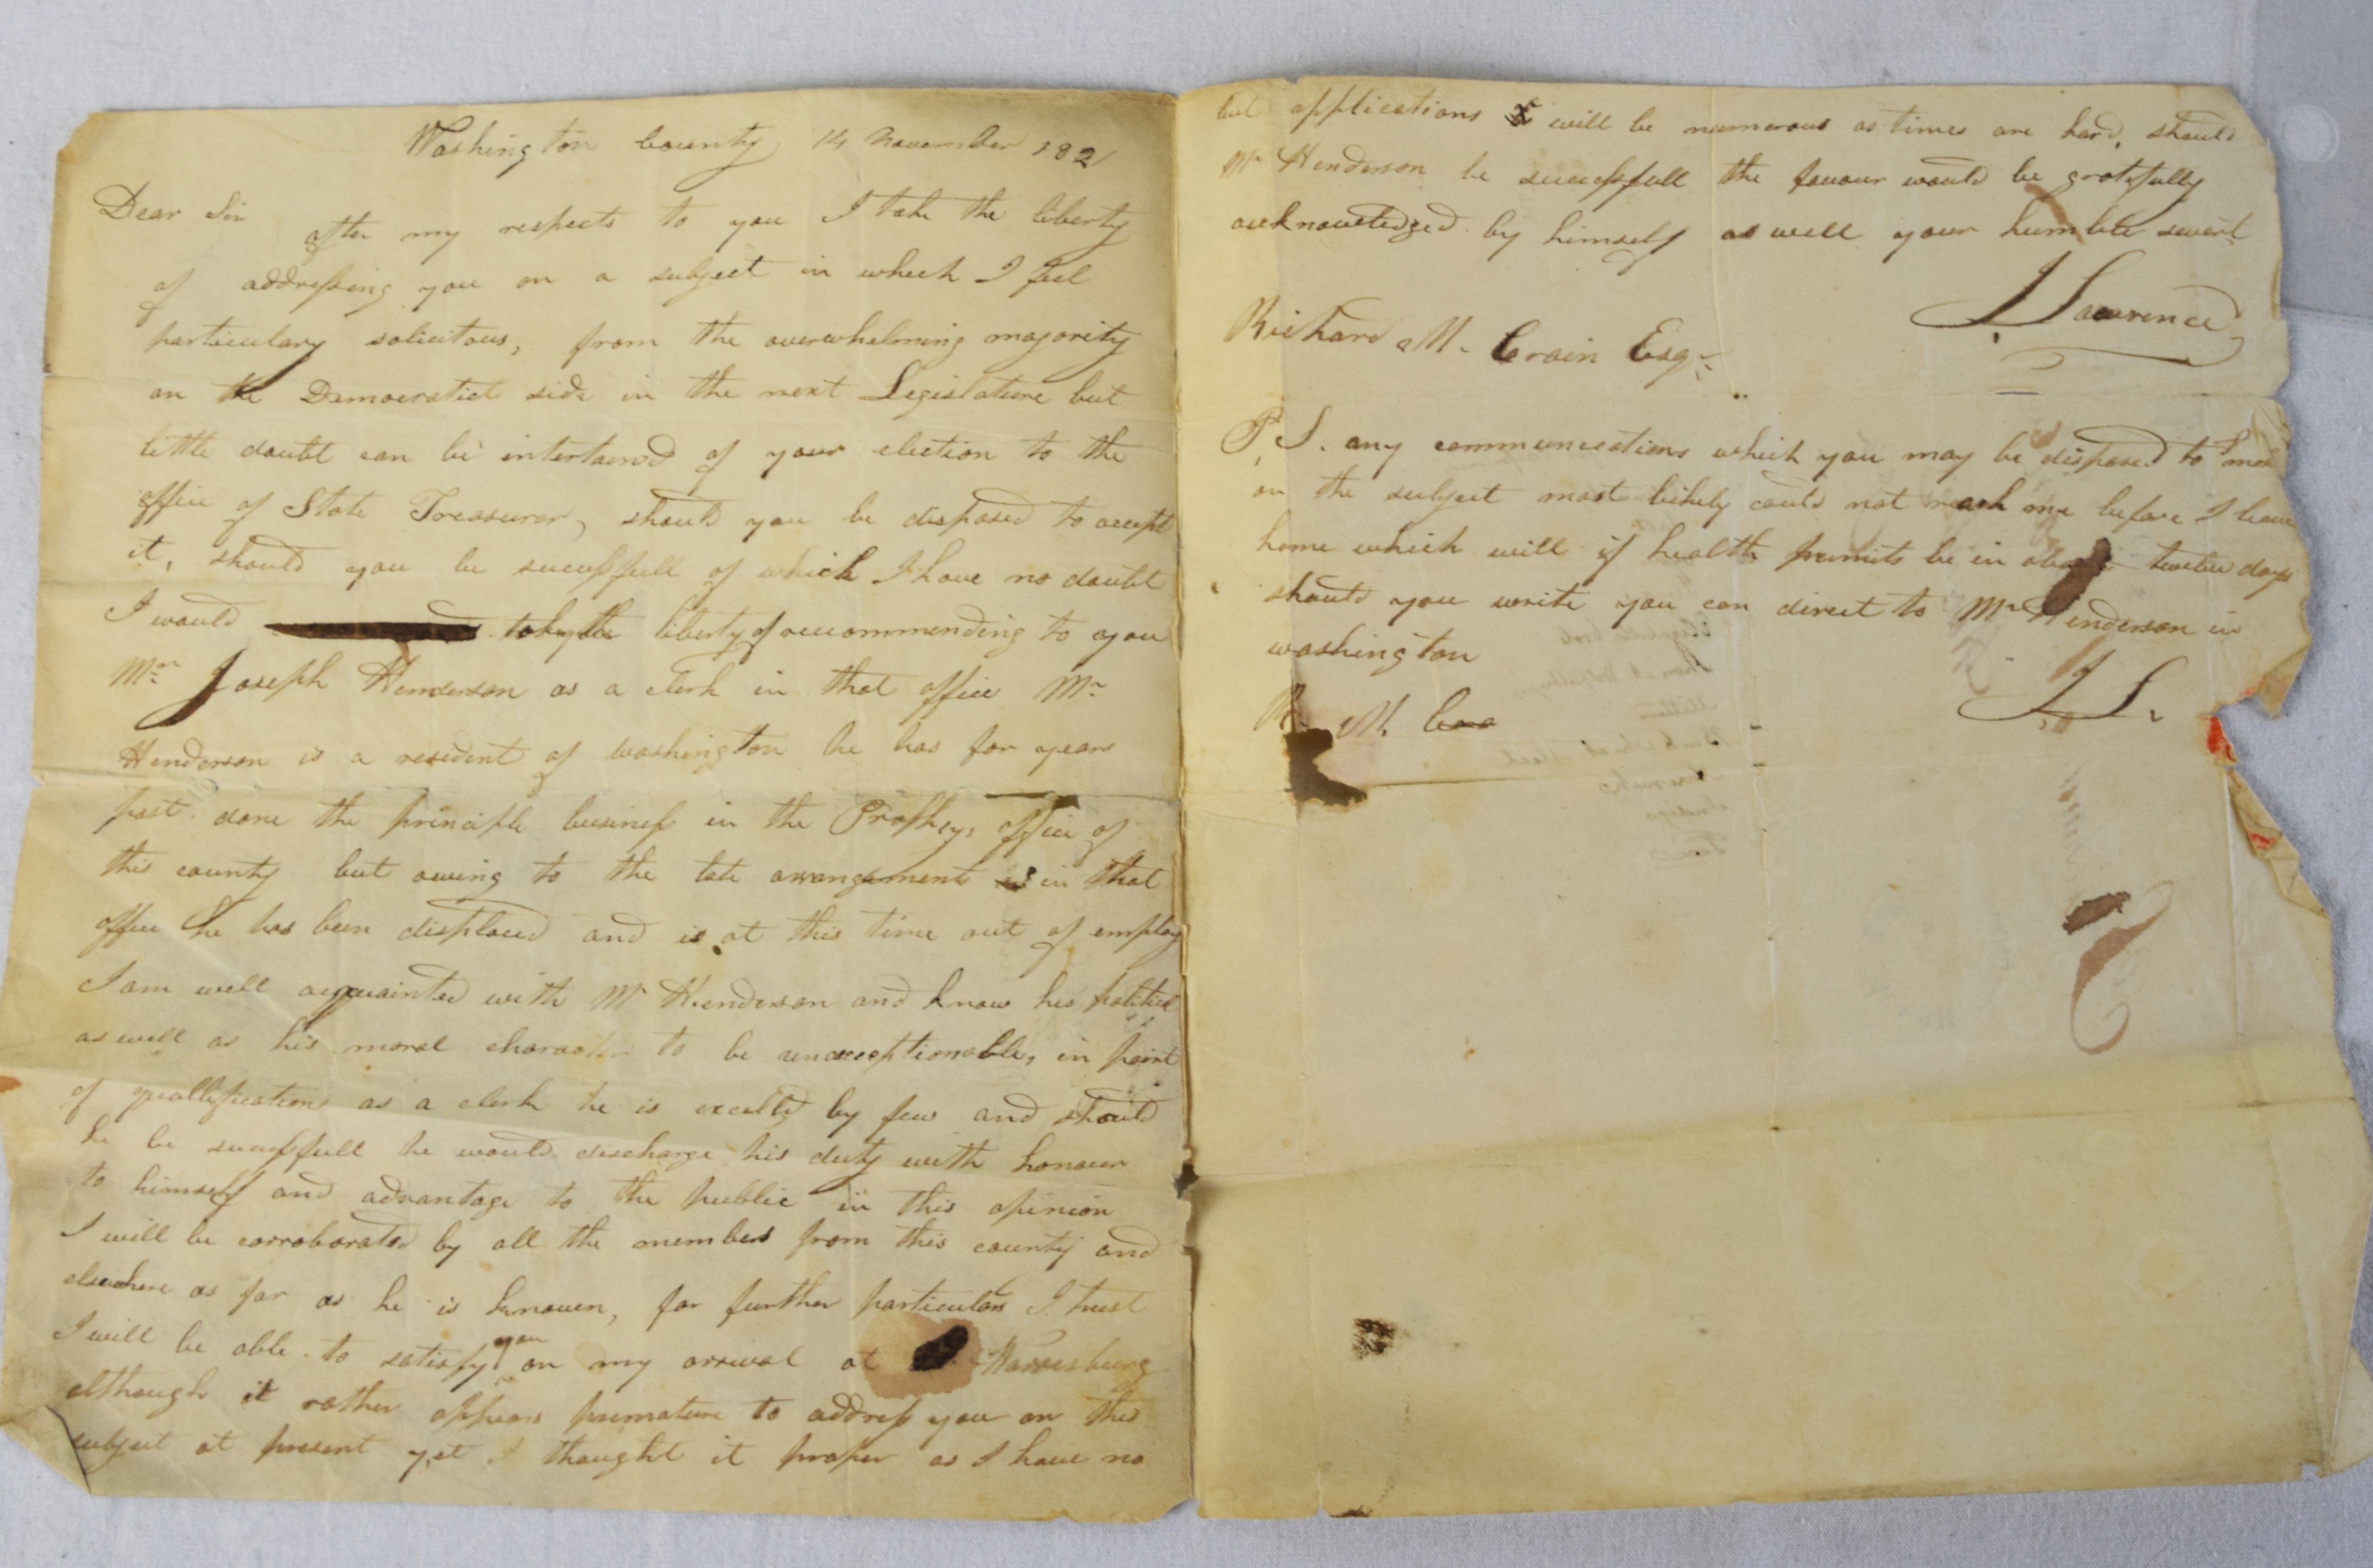 Washington County 14 November 1821
Dear Sir after my respects to you I take the liberty
of addressing you on a subject in which I feel
particulary solicitous, from the overwhelming majority
on the Democratict side in the next Legislature but
little doubt can be intertained of your election to the
office of State Treasurer, should you be disposed to accept
it, should you be successfull of which I have no doubt
I would take the liberty of reccommending to you
Mr Joseph Henderson as a clerk in that office Mr
Henderson is a resident of Washington he has for years
past done the principle business in the Prothys office of
this county but owing to the late arrangement in that
office he has been displaced and is at this time out of employ
I am well acquainted with Mr Henderson and know his political
as well as his moral character to be unexceptionable, in point
of quallification as a clerk he is excelled by few and should
he be successfull he would discharge his duty with honour
to himself and advantage to the public in this opinion
I will be corroborated by all the members from this county and
elsewhere as far as he is known, for further particulars I trust
I will be able to satisfy you on my arrival at Harrisburg
although it rather appears premature to address you on this
subject at present yet I thought it proper as I have no
but applications will be numerous as times are hard, should
Mr Henderson be successfull the favour would be gratefully
acknowledged by himself as well your humble servt
J Lawrence
Richard M. Crain Esqr
P.S. any communications which you may be disposed to make
on the subject most likely could not reach me before I leave
home which will if health permits be in about twelve days
should you write you can direct to Mr Henderson in
washington
J L.
R. M. Cra